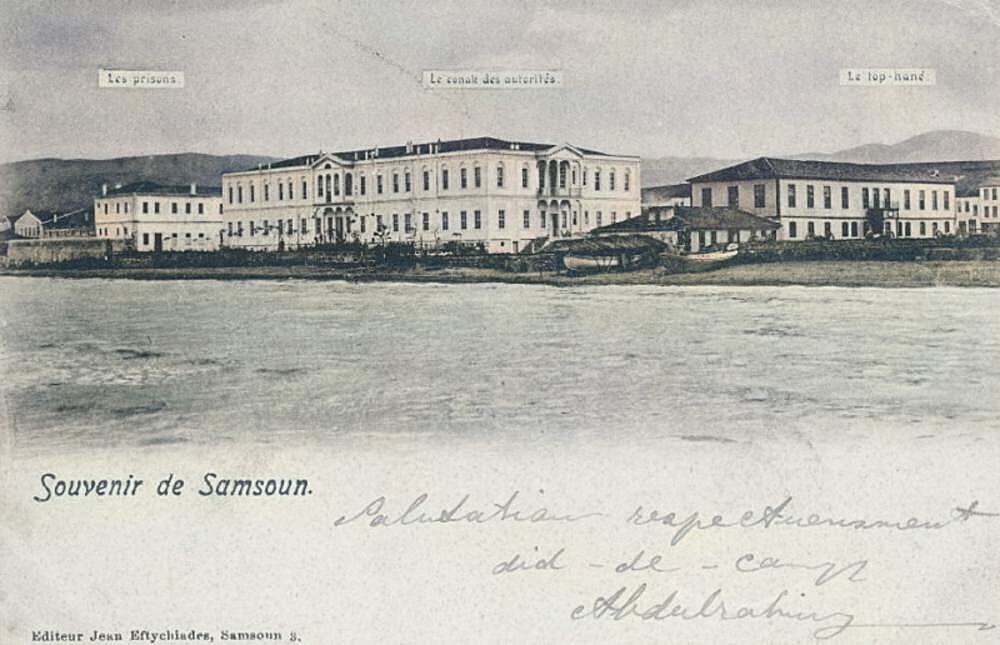 Les prisons.
Le conak des autorités.
Le top-hané.
Souvenir de Samsoun.
Salutation respectuensment
did - de - camp
Abdulrahim
Editeur Jean Eftychiades, Samsoun 3.